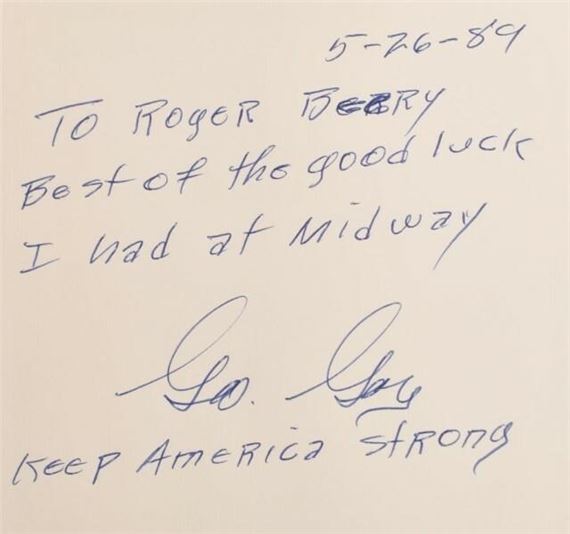 5-26-89
To Roger Berry
Best of the good luck
I had at Midway
Geo. Gay
Keep America strong